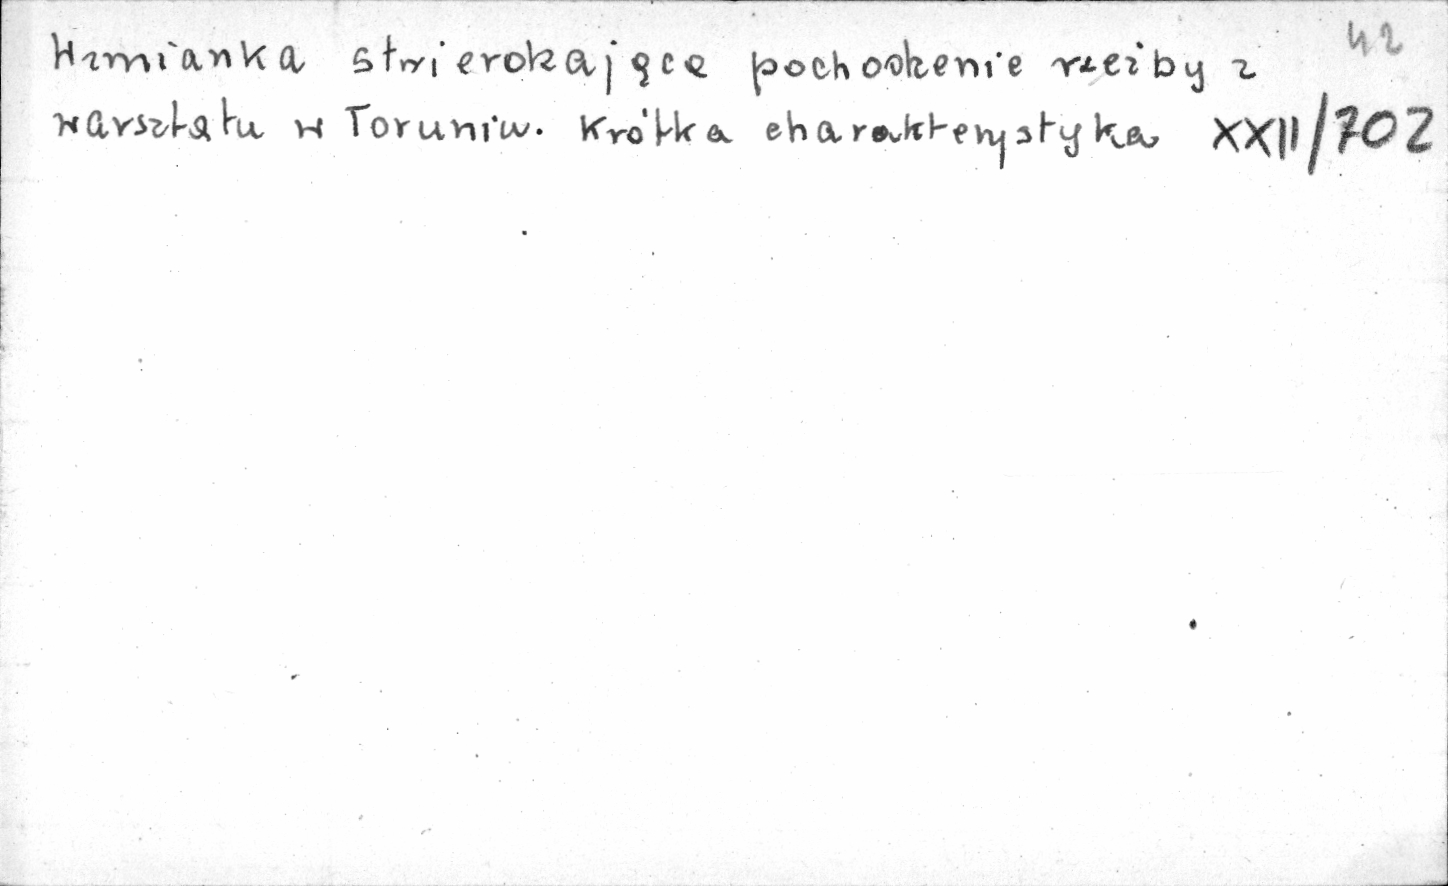 42
Wzmianka stwierdzająca pochodzenie rzeźby z
warsztatu w Toruniu. Krótka charakterystyka XXII/702